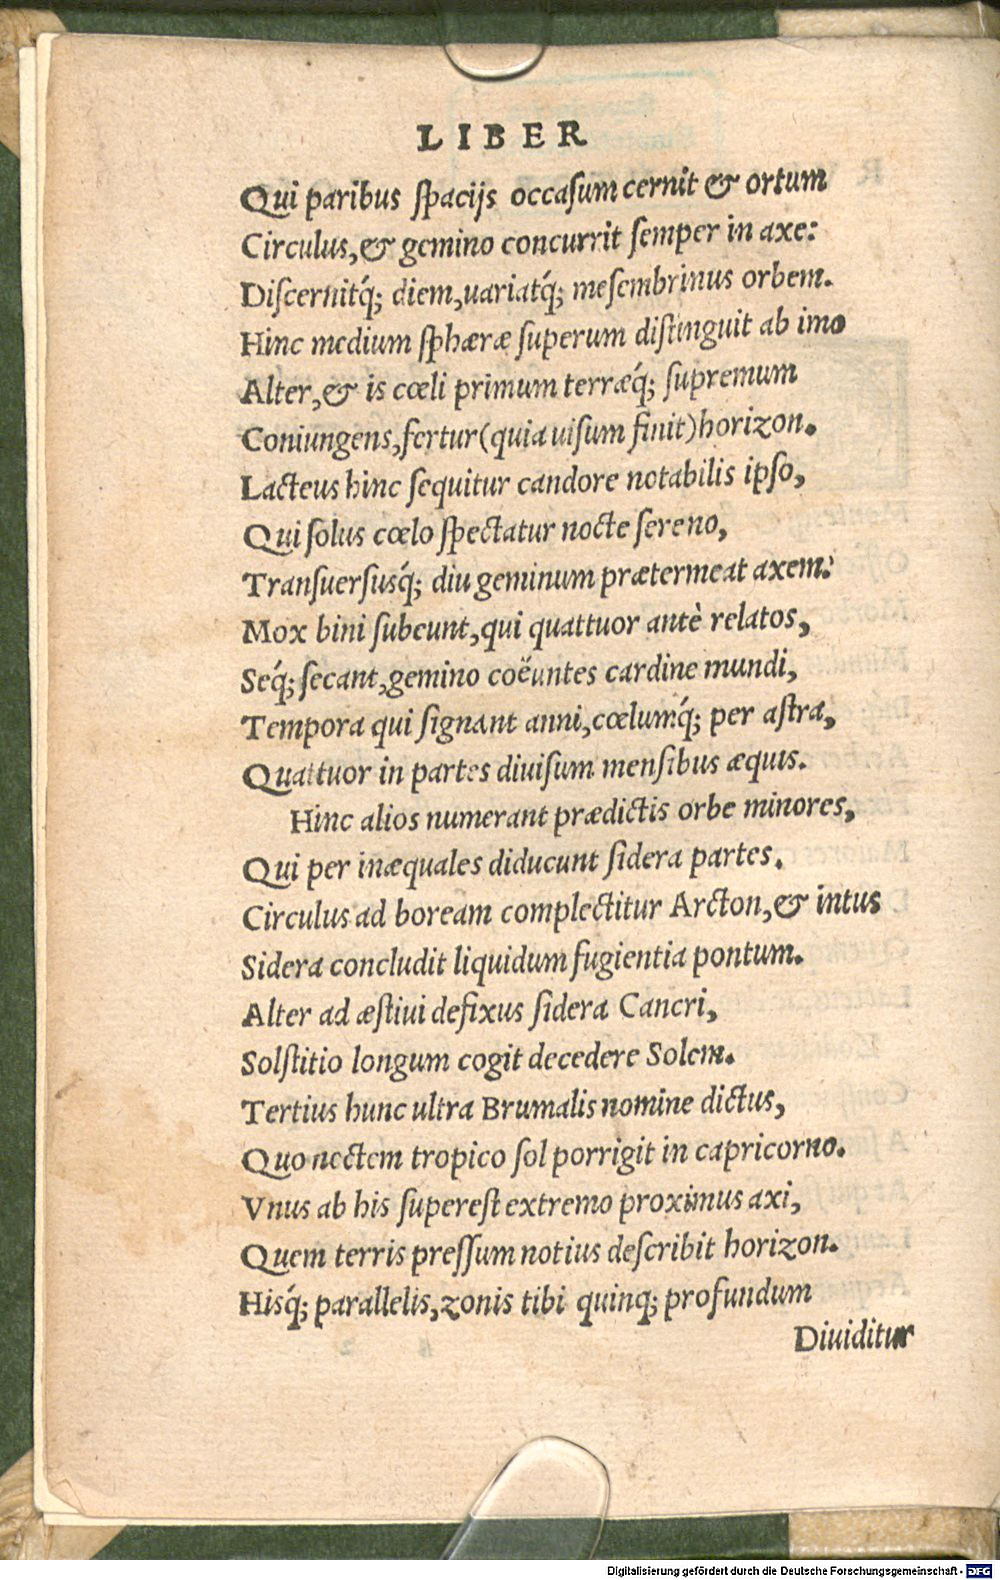 LIBER
Qui paribus spacijs occasum cernit & ortum
Circulus, & gemino concurrit semper in axe:
Discernitq́; diem, uariatq́; mesembrinus orbem.
Hinc medium sphæræ superum distinguit ab imo
Alter, & is cœli primum terræq́; supremum
Coniungens, fertur (quia uisum finit) horizon.
Lacteus hinc sequitur candore notabilis ipso,
Qui solus cœlo spectatur nocte sereno,
Transuersusq́; diu geminum prætermeat axem:
Mox bini subeunt, qui quattuor antè relatos,
Seq́; secant, gemino coëuntes cardine mundi,
Tempora qui signant anni, cœlumq́; per astra,
Quattuor in partes diuisum mensibus æquis.
Hinc alios numerant prædictis orbe minores,
Qui per inæquales diducunt sidera partes.
Circulus ad boream complectitur Arcton, & intus
Sidera concludit liquidum fugientia pontum.
Alter ad æstiui defixus sidera Cancri,
Solstitio longum cogit decedere Solem.
Tertius hunc ultra Brumalis nomine dictus,
Quo noctem tropico sol porrigit in capricorno.
Vnus ab his superest extremo proximus axi,
Quem terris pressum notius describit horizon.
Hisq́; parallelis, zonis tibi quinq; profundum
Diuiditur
Digitalisierung gefördert durch die Deutsche Forschungsgemeinschaft - DFG